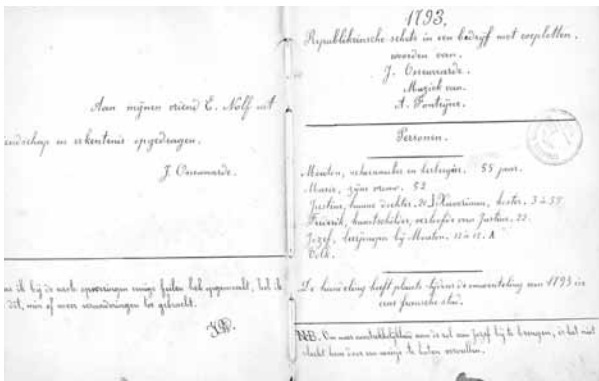 Aan mijnen vriend E. Nolf uit
endschap en erkentenis opgedragen.
J. Ossewaarde.
ik bij de eerste opvoeringen eenige feilen heb opgemerkt, heb ik
dit, min of meer veranderingen toe gebracht.
1793.
Republikeinsche schets in een bedrijf met coupletten.
woorden van
J. Ossewaarde.
Muziek van
A. Fonteyne.
Personen.
Mouton, schoenmaker en herbergier. 55 jaar.
Marie, zijne vrouw. 52
Justine, hunne dochter. 20 Xaverinus, koster. 3 à 55.
Frederik, kunstschilder, verloofde van Justine. 22.
Jozef, leerjongen bij Mouton. 12 à 17.
Volk.
De handeling heeft plaats tijdens de omwenteling van 1793 in
eene fransche stad.
NB. Om meer aantrekkelijkheid aan de rol van Jozef bij te brengen, is het niet
slecht hem door een meisje te laten vervullen.